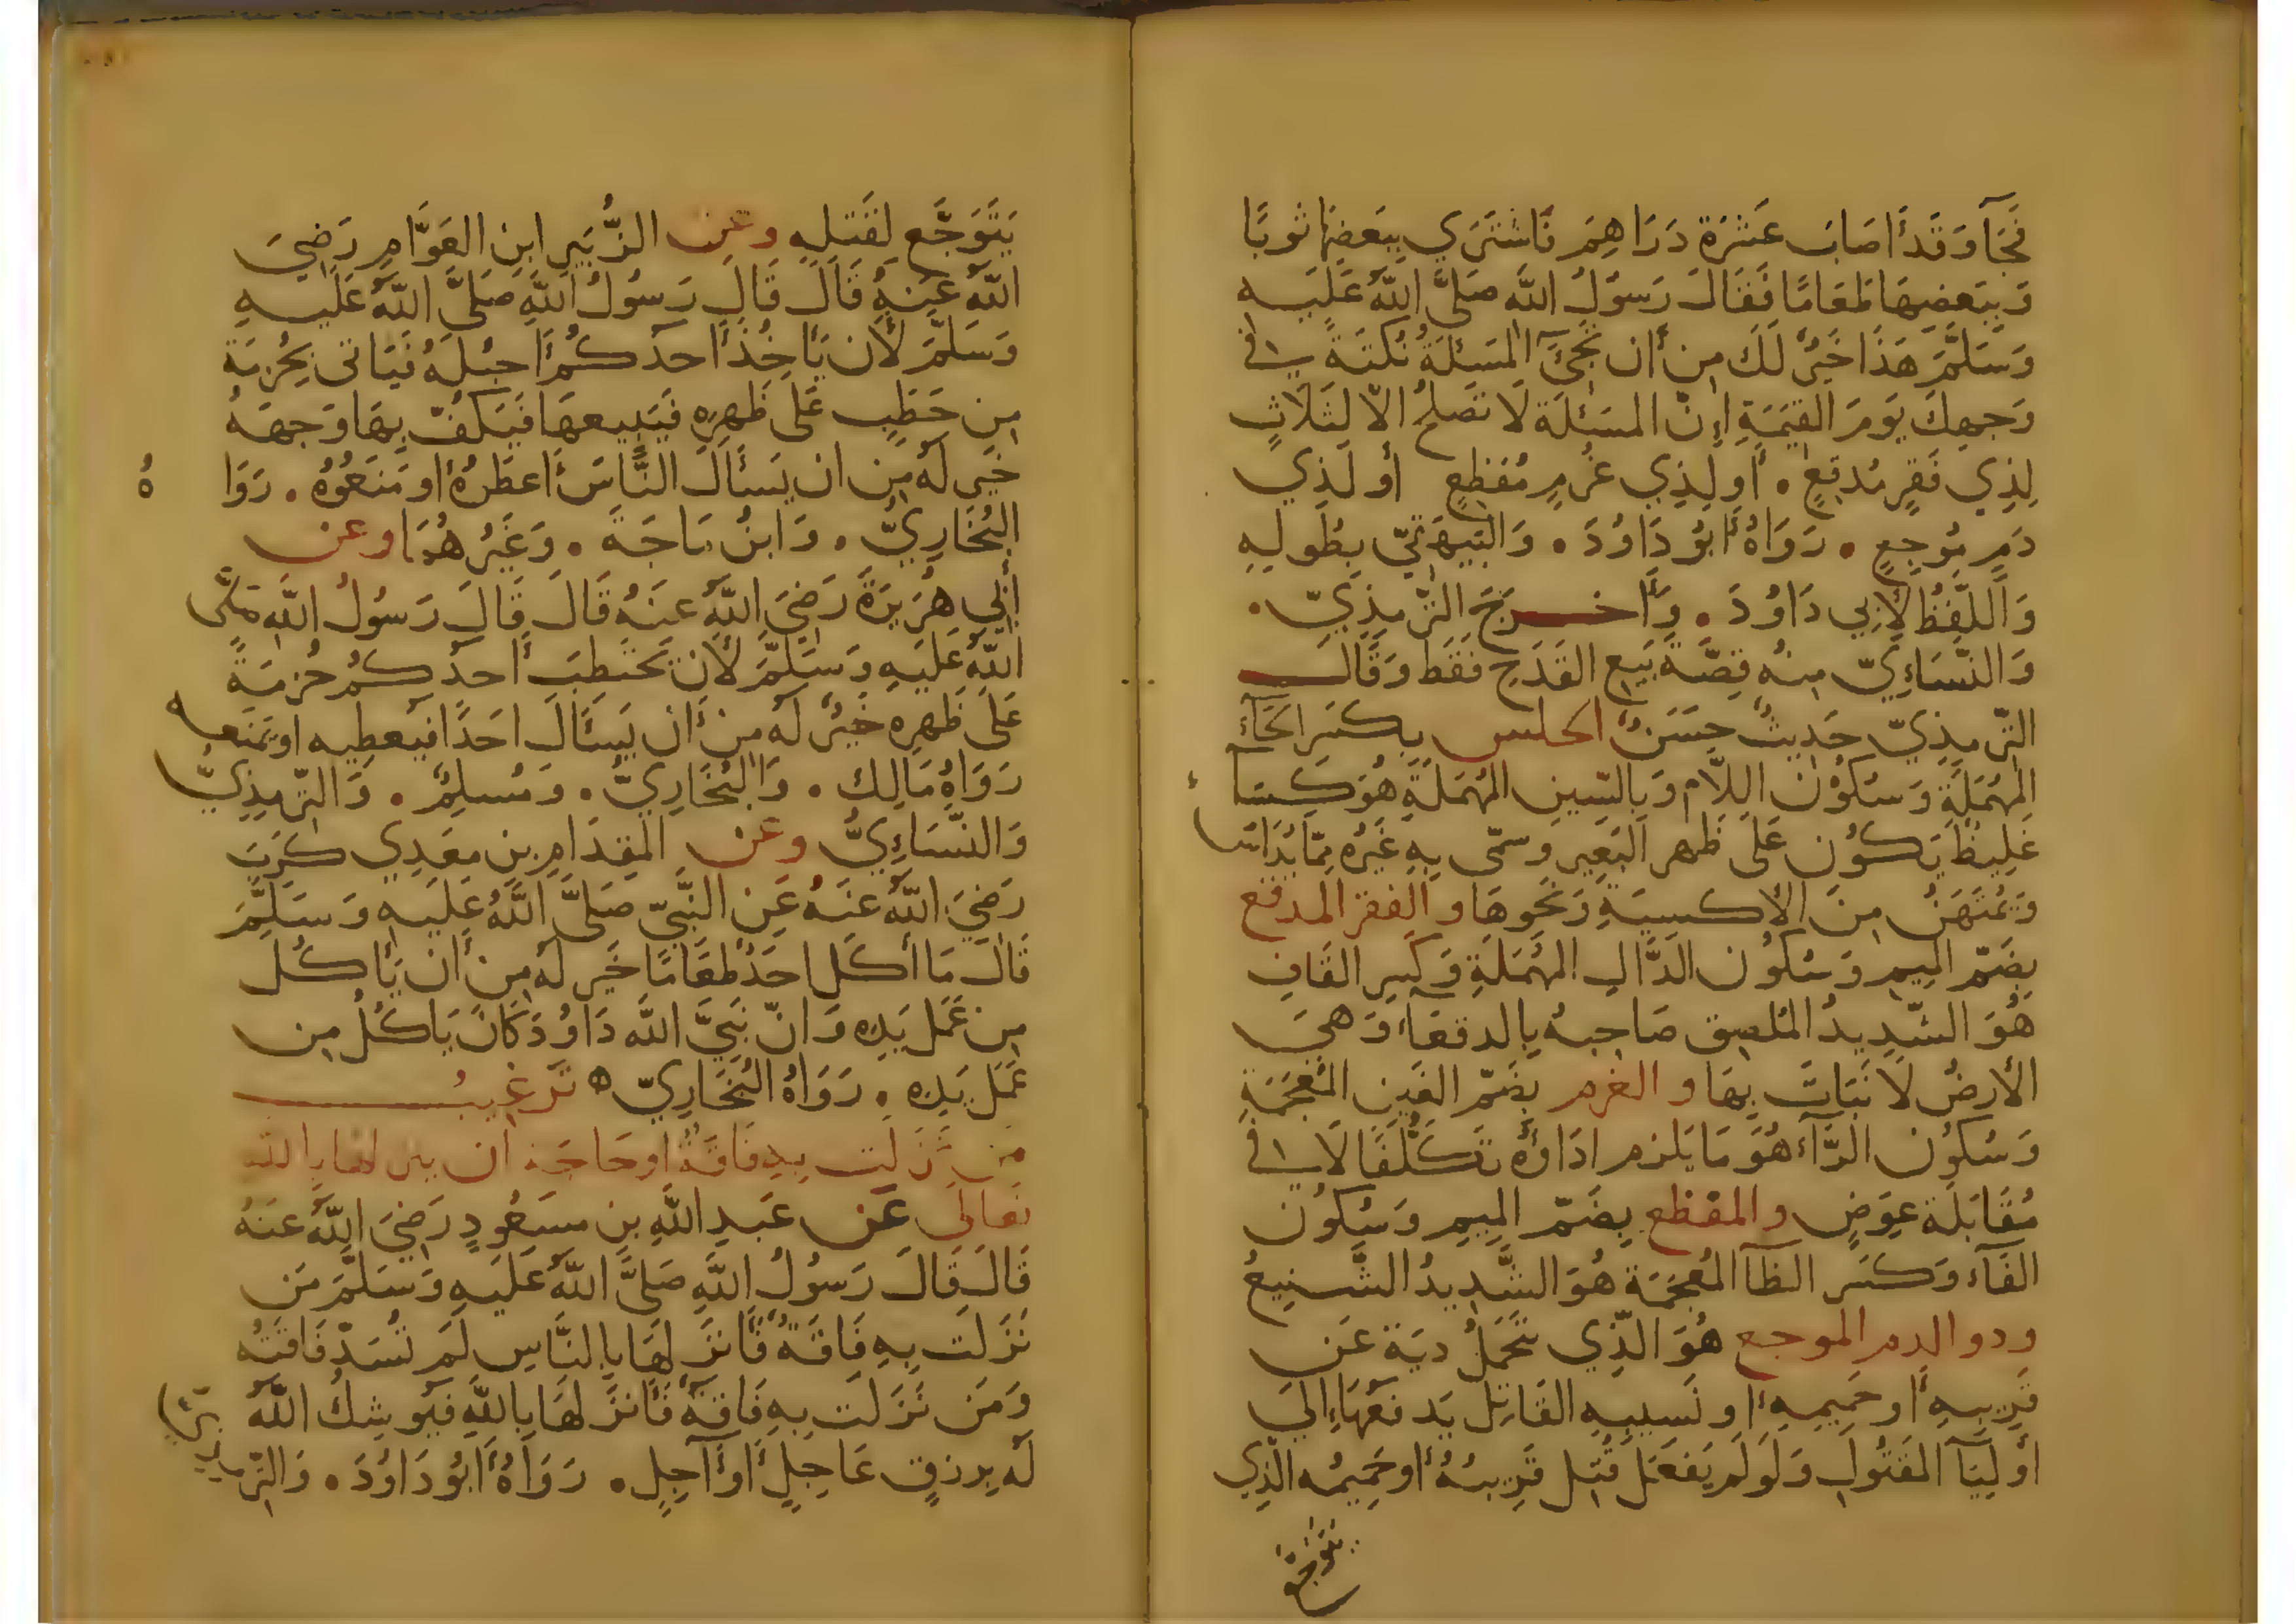 فَجَآ وَقَدْ أَصَابَ عَشْرَةَ دَرَاهِمَ فَاشْتَرَي بِبَعْضِهَا ثَوْبًا
وَبِبَعْضِهَا طَعَامًا فَقَالَ رَسُوْلُ اللَّهِ صَلَّى اللَّهُ عَلَيْهِ
وَسَلَّمَ هَذَا خَيْرٌ لَكَ مِنْ أَنْ تَجِئَ الْمَسْئَلَةُ نُكْتَةً فِي
وَجْهِكَ يَوْمَ الْقِيٰمَةِ إِنَّ الْمَسْئَلَةَ لَا تَصْلُحُ إِلَّا لِثَلَاثٍ
لِذِي فَقْرٍ مُدْقِعٍ . أَوْ لِذِي غُرْمٍ مُفْظِعٍ أَوْ لِذِي
دَمٍ مُوْجِعٍ . رَوَاهُ أَبُوْ دَاوُدَ . وَالْبَيْهَقِيّ بِطُولِهِ
وَاللَّفْظُ لِأَبِي دَاوُدَ . وَأَخْرَجَ التِّرْمِذِيّ .
وَالنَّسَاءِيّ مِنْهُ قِصَّةَ بَيْعِ الْقَدَحِ فَقَطْ وَقَالَ
التِّرْمِذِيّ حَدِيثٌ حَسَنٌ الحلس بِكَسْرِ الْحَآءِ
الْمُهْمَلَةِ وَسُكُوْنِ اللَّامِ وَبِالسِّينِ الْمُهْمَلَةِ هُوَ كِسَآءٌ
غَلِيظٌ يَكُوْنُ عَلَى ظَهْرِ الْبَعِيرِ وَسُمِّى بِهِ غَيْرُهُ مِمَّا يُدَاسُ
وَيُمْتَهَنُ مِنَ الْأَكْسِيَةِ وَنَحْوِهَا والفقر المدقع
بِضَمِّ الْمِيمِ وَسُكُوْنِ الدَّالِ الْمُهْمَلَةِ وَكَسْرِ الْقَافِ
هُوَ الشَّدِيدُ الْمُلْصِقُ صَاحِبَهُ بِالدَّقْعَآءِ وَهِيَ
الْأَرْضُ لَا نَبَاتَ بِهَا والغرم بِضَمِّ الْغَيْنِ الْمُعْجَمَةِ
وَسُكُوْنِ الرَّآءِ هُوَ مَا يَلْزَمُ أَدَاؤُهُ تَكَلُّفًا لَا فِي
مُقَابَلَةِ عِوَضٍ والمفظع بِضَمِّ الْمِيمِ وَسُكُوْنِ
الْفَآءِ وَكَسْرِ الظَّآ الْمُعْجَمَةِ هُوَ الشَّدِيدُ الشَّنِيعُ
وذو الدم الموجع هُوَ الَّذِي تَحَمَّلَ دِيَةً عَنْ
قَرِيبِهِ أَوْ حَمِيمِهِ أَوْ نَسِيبِهِ الْقَاتِلِ يَدْفَعُهَا إِلَى
أَوْلِيَآ الْمَقْتُولِ وَلَوْ لَمْ يَفْعَلْ قُتِلَ قَرِيبُهُ أَوْ حَمِيمُهُ الَّذِي
يَتَوَجَّعُ
يَتَوَجَّعُ لِقَتْلِهِ وعن الزُّبَيْرِ ابْنِ الْعَوَّامِ رَضِيَ
اللَّهُ عَنْهُ قَالَ قَالَ رَسُوْلُ اللَّهِ صَلَّى اللَّهُ عَلَيْهِ
وَسَلَّمَ لَأَنْ يَأْخُذَ أَحَدُكُمْ أَحْبُلَهُ فَيَاتى بِحُزْمَةٍ
مِنْ حَطَبٍ عَلَى ظَهْرِهِ فَيَبِيعَهَا فَيَكُفّ بِهَا وَجْهَهُ
خَيْر لَهُ مِنْ أَنْ يَسْأَلَ النَّاسَ أَعْطَوْهُ أَوْ مَنَعُوْهُ . رَوَاهُ
الْبُخَارِيُّ . وَابْنُ مَاجَةَ . وَغَيْرُهُمَا وعن
أَبِي هُرَيْرَةَ رَضِيَ اللَّهُ عَنْهُ قَالَ قَالَ رَسُوْلُ اللَّهِ صَلَّى
اللَّهُ عَلَيْهِ وَسَلَّمَ لَأَنْ يَحْتَطِبَ أَحَدُكُمْ حُزْمَةً
عَلَى ظَهْرِهِ خَيْرٌ لَهُ مِنْ أَنْ يَسْئَالَ أَحَدًا فَيُعْطِيه أَوْ يَمْنَعه
رَوَاهُ مَالِك . وَالْبُخَارِيُّ . وَمُسْلِمٌ . وَالتِّرْمِذِيُّ
وَالنَّسَاءِيُّ وعن الْمِقْدَامِ بْنِ مَعْدِي كَرِبَ
رَضِيَ اللَّهُ عَنْهُ عَنِ النَّبِيِّ صَلَّى اللَّهُ عَلَيْهِ وَسَلَّمَ
قَالَ مَا أَكَلَ أَحَدٌ طَعَامًا خَيْر لَهُ مِنْ أَنْ يَأْكُلَ
مِنْ عَمَلِ يَدِهِ وَإِنَّ نَبِيَّ اللَّهِ دَاوُدَ كَانَ يَاكُلُ مِنْ
عَمَلِ يَدِهِ . رَوَاهُ الْبُخَارِيّ ه تَرْغِيبُ
مَنْ نَزَلَتْ بِهِ فَاقَةٌ أَوْ حَاجَة أَنْ ينزلها بِاللهِ
تَعَالَى عَنْ عَبْدِ اللَّهِ بْنِ مَسْعُودٍ رَضِيَ اللَّهُ عَنْهُ
قَالَ قَالَ رَسُوْلُ اللَّهِ صَلَّى اللَّهُ عَلَيْهِ وَسَلَّمَ مَنْ
نَزَلَتْ بِهِ فَاقَةٌ فَأَنْزَلَهَا بِالنَّاسِ لَمْ تُسَدّ فَاقَتُهُ
وَمَنْ نَزَلَتْ بِهِ فَاقَةٌ فَأَنْزَلَهَا بِاللَّهِ فَيُوشِكُ اللَّهُ
لَهُ بِرِزْقٍ عَاجِلٍ أَوْ آجِلٍ . رَوَاهُ أَبُوْ دَاوُدَ . وَالتِّرْمِذِيُّ